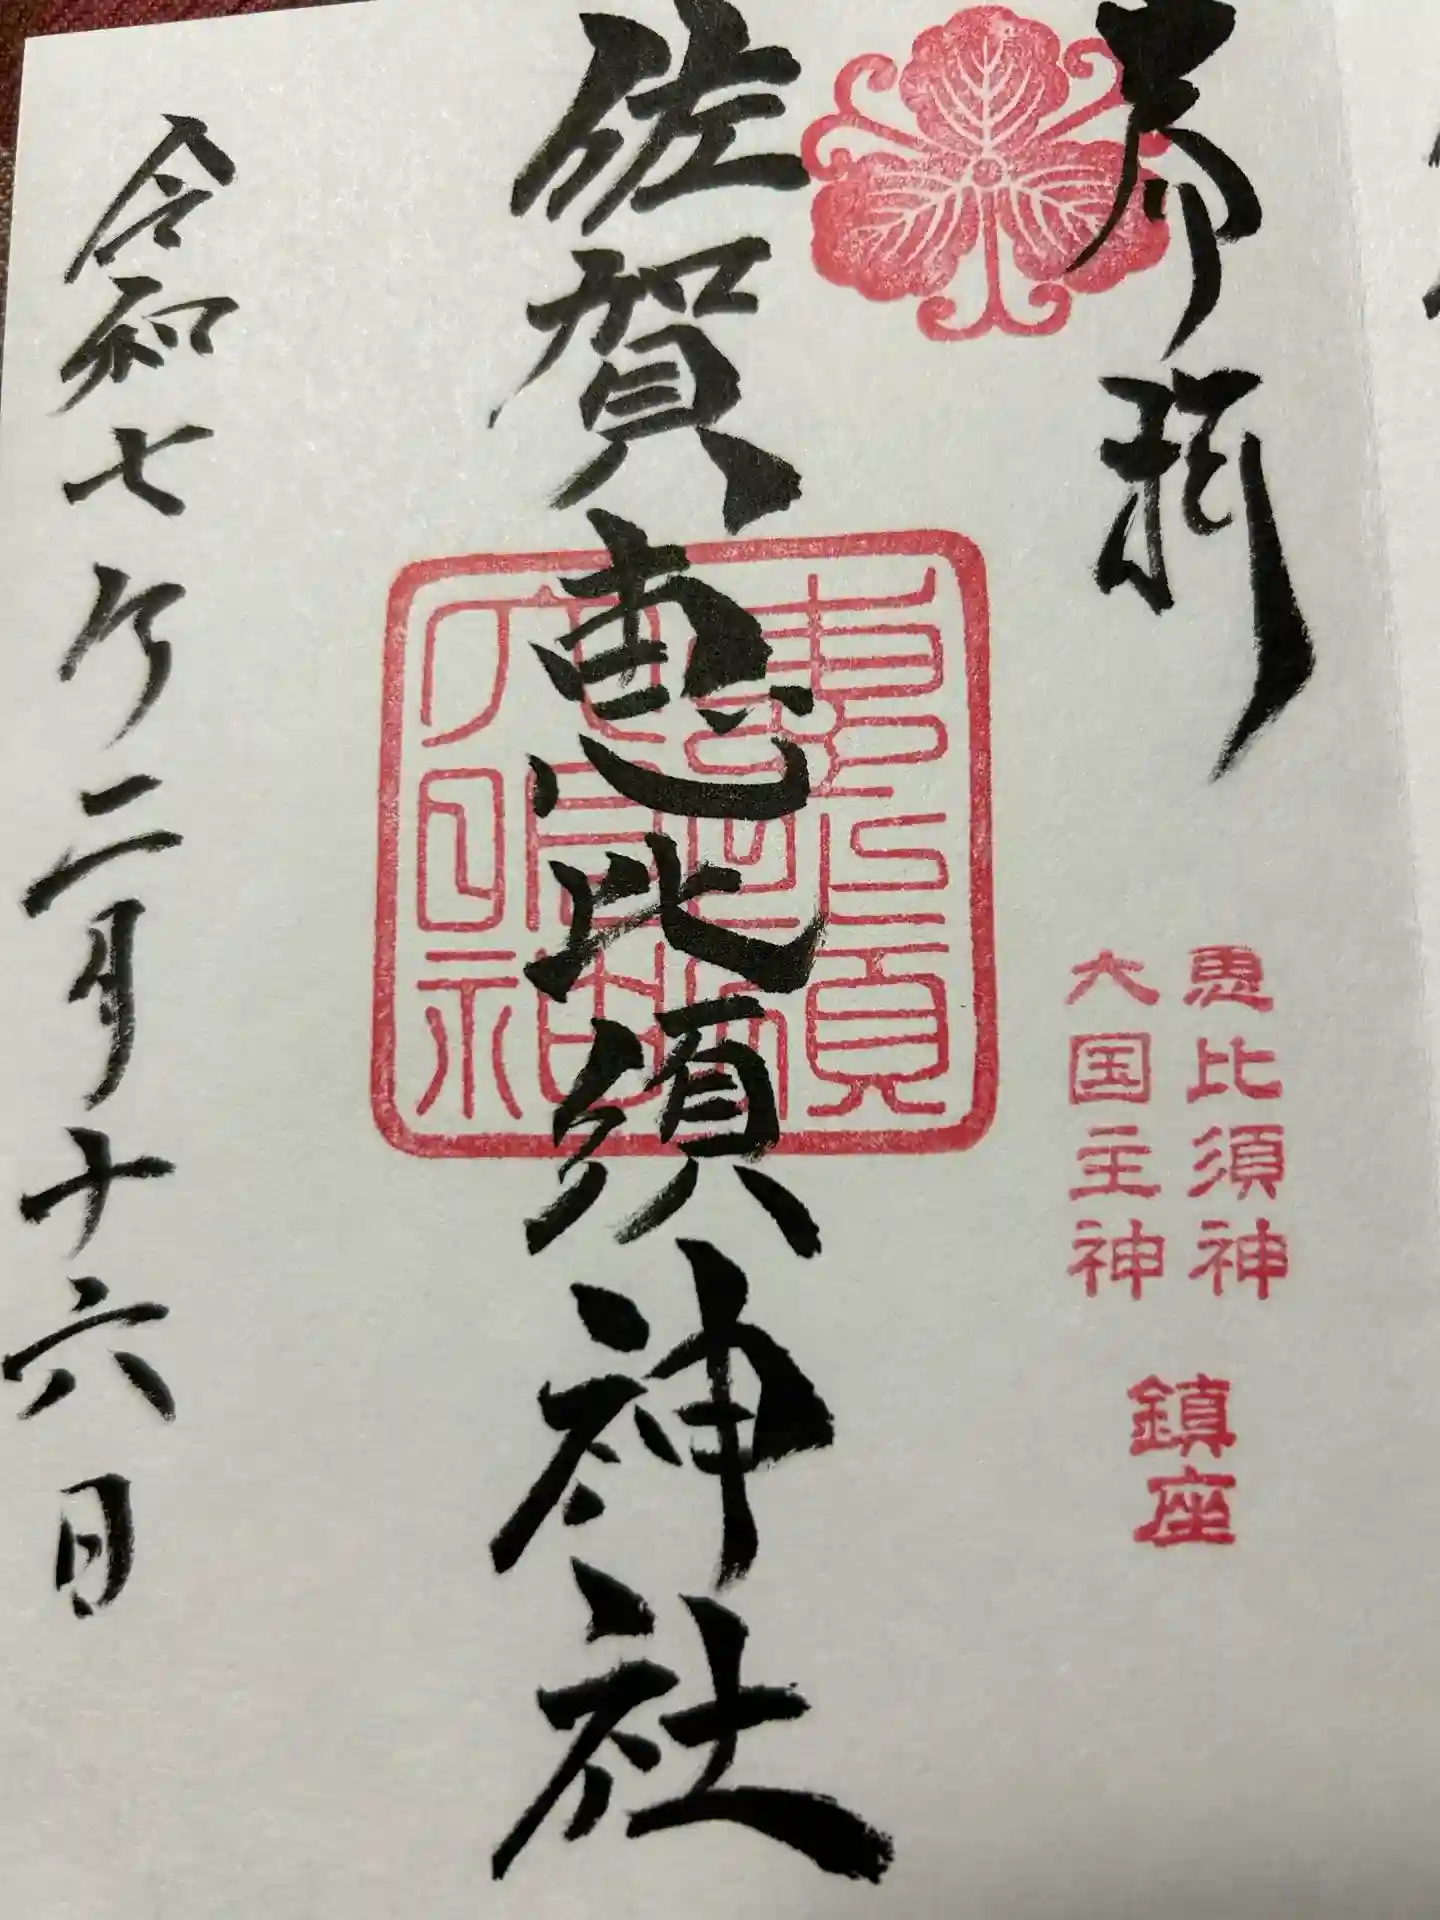 奉拝
恵比須神
大国主神
鎮座
佐賀恵比須神社
令和七年二月十六日